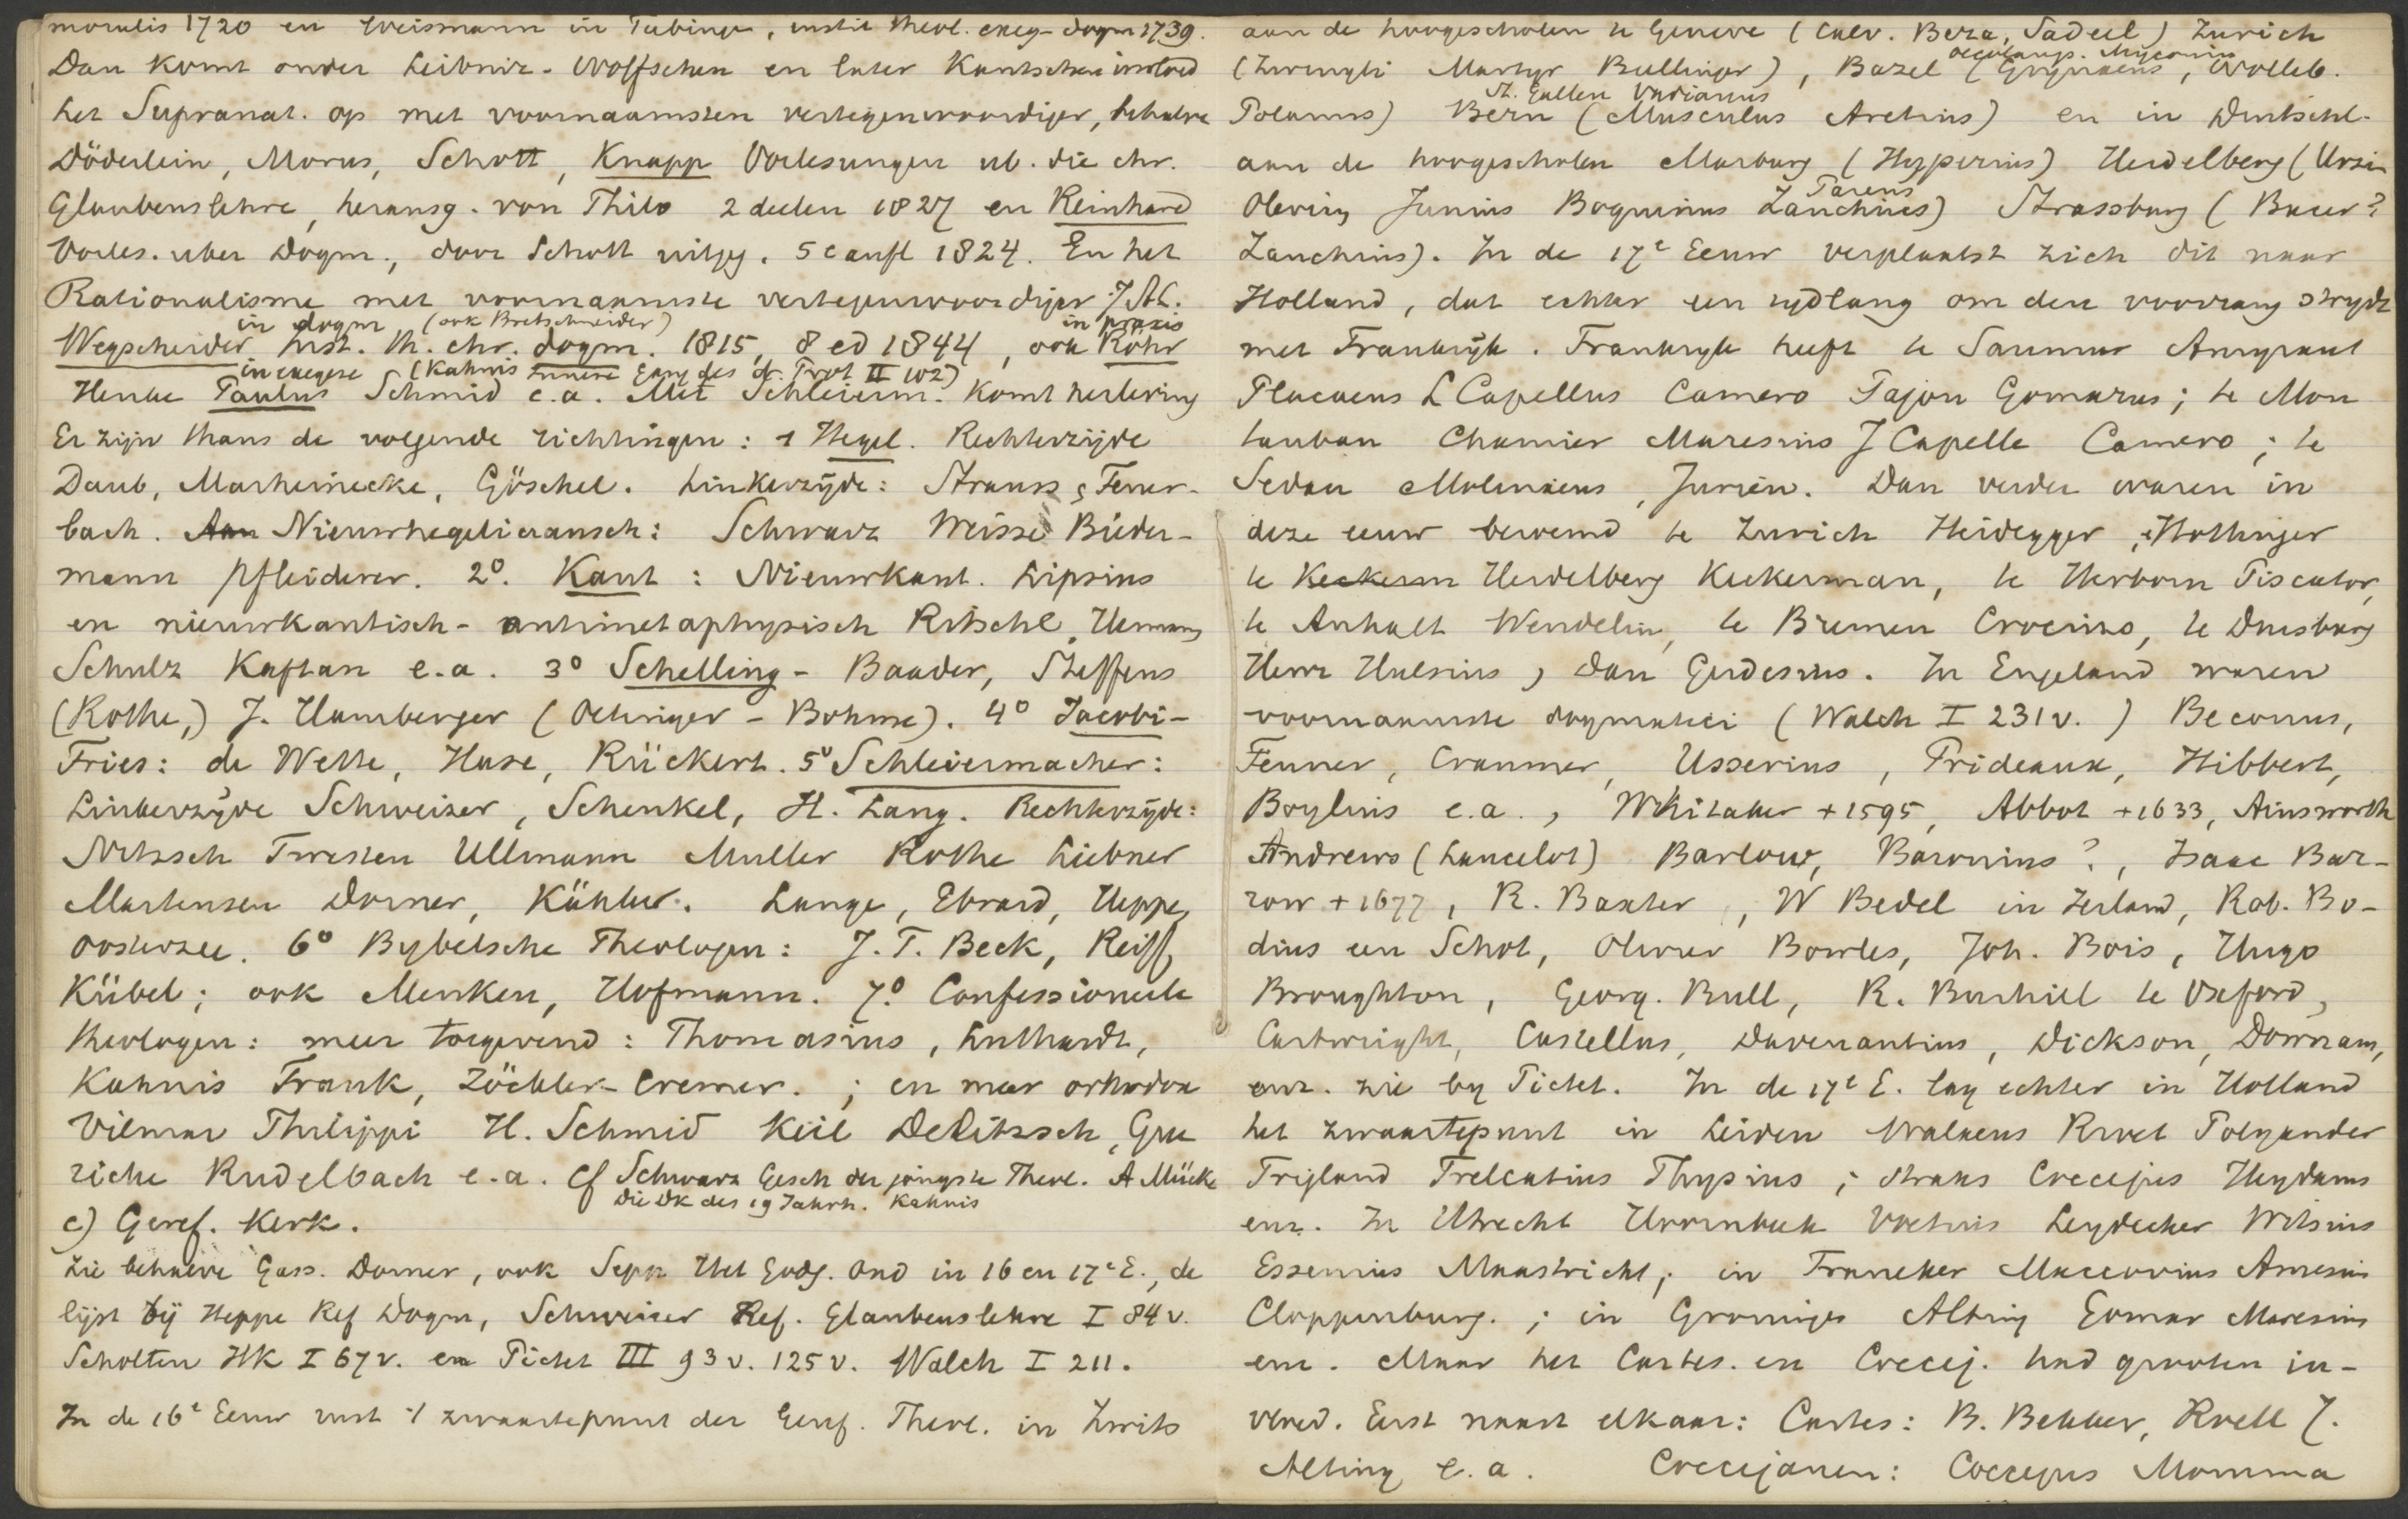 moralis 1720 en Weismann in Tubinge, instit theol. exeg-dogm 1739.
Dan komt onder Leibniz-Wolffschen en later Kantschen invloed
het Supranat. op met voornaamsten vertegenwoordiger, behalve
Döderlein, Morus, Schott, Knapp Vorlesungen ub. die chr.
Glaubenslehre, herausg. von Thilo 2 deelen 1827 en Reinhard
Vorles. uber Dogm., door Schott uitgeg. 5e aufl 1824. En het
Rationalisme met voornaamste vertegenwoordiger J.A.L.
in dogm (ook Bretschneider) in praxis
Wegscheider Inst. th. chr. dogm. 1815, 8 ed 1844, ook Röhr
in exegese (Kahnis Innere Gang des d. Prot II 102)
Henke Paulus Schmid e.a. Met Schleierm. komt herleving
Er zijn thans de volgende richtingen: 1 Hegel. Rechterzijde
Daub, Marheinecke, Göschel. Linkerzijde: Strauss, Feuer-
bach. Aan Nieuwhegeliaansch: Schwarz Weisse Bieder-
mann Pfleiderer. 2º. Kant: Nieuwkant. Lipsius
en nieuwkantisch-antimetaphysisch Ritschl, Hermann
Schulz Kaftan e.a. 3º Schelling - Baader, Steffens
(Rothe,) J. Hamberger (Oetinger - Bohme). 4º Jacobi-
Fries: de Wette, Hase, Rückert. 5º Schleiermacher:
Linkerzijde Schweizer, Schenkel, H. Lang. Rechterzijde:
Nitzsch Twesten Ullmann Muller Rothe Liebner
Martensen Dorner, Kähler. Lange, Ebrard, Heppe,
Oosterzee. 6º Bybelsche Theologen: J. T. Beck, Reiff,
Kübel; ook Menken, Hofmann. 7º. Confessioneele
theologen: meer toegevend: Thomasius, Luthardt,
Kahnis Frank, Zöckler-Cremer. ; en meer orthodox
Vilmar Philippi H. Schmid Keil Delitzsch, Gue
ricke Rudelbach e.a. Cf Schwarz Gesch der jongste Theol. A Mücke
Die Dk des 19 Jahrh. Kahnis
c) Geref. Kerk.
Zie behalve Gass. Dorner, ook Sepp Het Godg. Ond in 16 en 17e E., de
lijst bij Heppe Ref Dogm, Schweizer Ref. Glaubenslehre I 84 v.
Scholten HK I 67 v. en Pictet III 93 v. 125 v. Walch I 211.
In de 16e Eeuw rust 't zwaartepunt der Geref. Theol. in Zwits
aan de hoogescholen te Geneve (Calv. Beza, Sadeel) Zurich
Oecolamp. Myconius
(Zwingli Martyr Bullinger), Bazel (Grynaeus, Wolleb.
St. Gallen Vadianus
Polanus) Bern (Musculus Aretius) en in Duitschl.
aan de hoogescholen Marburg (Hyperius) Heidelberg (Ursin
Pareus
Olevin, Junius Boquinus Zanchius) Strassburg (Bucer?
Zanchius). In de 17e Eeuw verplaatst zich dit naar
Holland, dat echter een tydlang om den voorrang strydt
met Frankrijk. Frankryk heeft te Saumur Amyraut
Placaeus L Capellus Camero Pajon Gomarus; te Mon
tauban Chamier Maresius J Capelle Camero; te
Sedan Molinaeus, Jurien. Dan verder waren in
deze eeuw beroemd te Zurich Heidegger, Hottinger
te Keckerm Heidelberg Keckerman, te Herborn Piscator,
te Anhalt Wendelin, te Bremen Crocius, te Duisburg
Henr Hulsius, dan Gerdesius. In Engeland waren
voornaamste dogmatici (Walch I 231 v.) Beconus,
Fenner, Cranmer, Usserius, Prideaux, Hibbert,
Boylius e.a., Whitaker +1595, Abbot +1633, Ainsworth
Andrews (Lancelot) Barlow, Baronius?, Isaac Bar-
row +1677, R. Baxter, W Bedel in Ierland, Rob. Bo-
dius een Schot, Oliver Bowles, Joh. Bois, Hugo
Broughton, Georg. Bull, R. Burhill te Oxford,
Cartwright, Castellus, Davenantius, Dickson, Downam,
enz. zie by Pictet. In de 17e E. lag echter in Holland
het zwaartepunt in Leiden Walaeus Rivet Polyander
Trigland Trelcatius Thysius; straks Coccejus Heydanus
enz. In Utrecht Hoornbeek Voetius Leydecker Witsius
Essenius Maastricht; in Franeker Maccovius Amesius
Cloppenburg. ; in Groningen Alting Gomar Maresius
enz. Maar het Cartes. en Coccej. had grooten in-
vloed. Eerst naast elkaar: Cartes: B. Bekker, Roell J.
Alting e.a. Coccejanen: Coccejus Momma